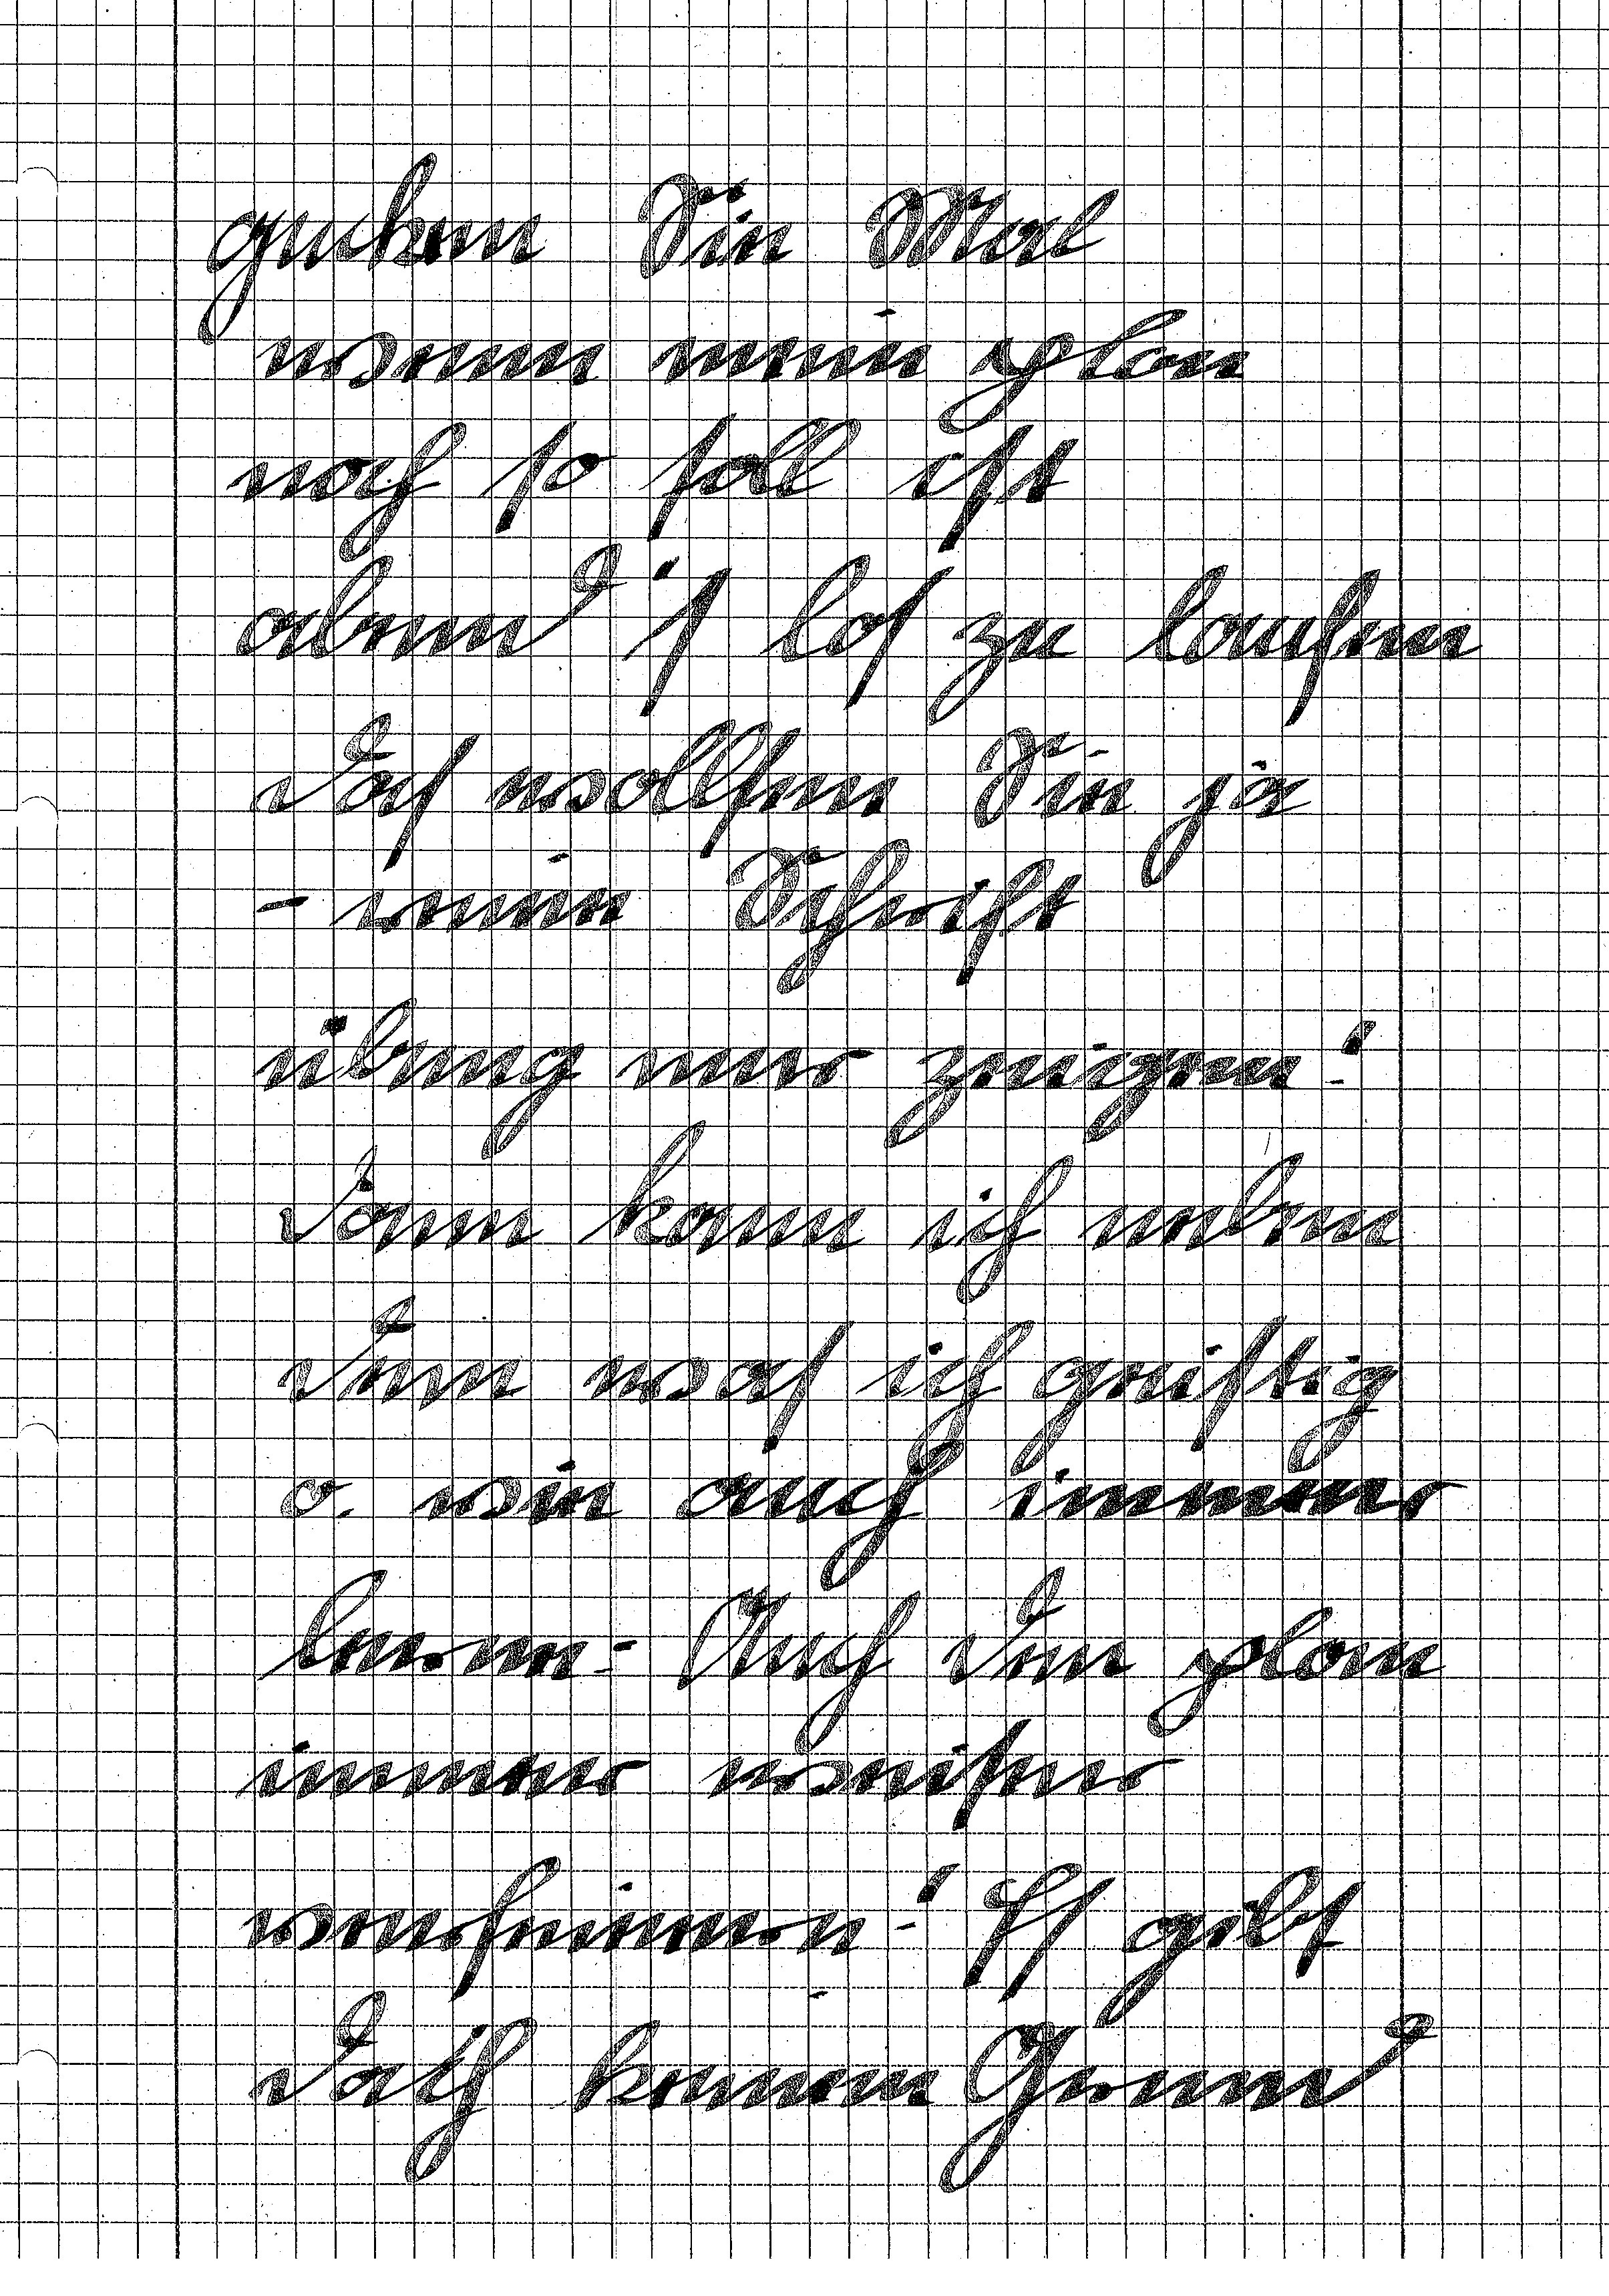 gucken Sie Mal
wenn mein plan
noch so toll ist
abend's los zu laufen
das wollten Sie ja
- meine Schrift
übung nur zeigen!
dann kann ich neben
dem was ich geistig
o. wie auch immer
lerne - Auch den plan
immer weiter
verfeinern! Es gibt
doch keinen Grund